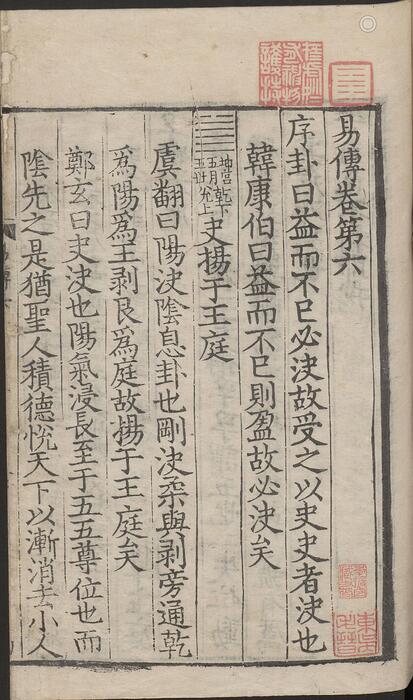 易傳卷第六
序卦曰益而不已必決故受之以夬夬者決也
韓康伯曰益而不已則盈故必決矣
坤宮五世
乾下兌上
五月
夬揚于王庭
虞翻曰陽決陰息卦也剛決柔與剥旁通乾
為陽為王剥艮為庭故揚于王庭矣
鄭玄曰夬決也陽氣浸長至于五五尊位也而
陰先之是猶聖人積德悅天下以漸消去小人